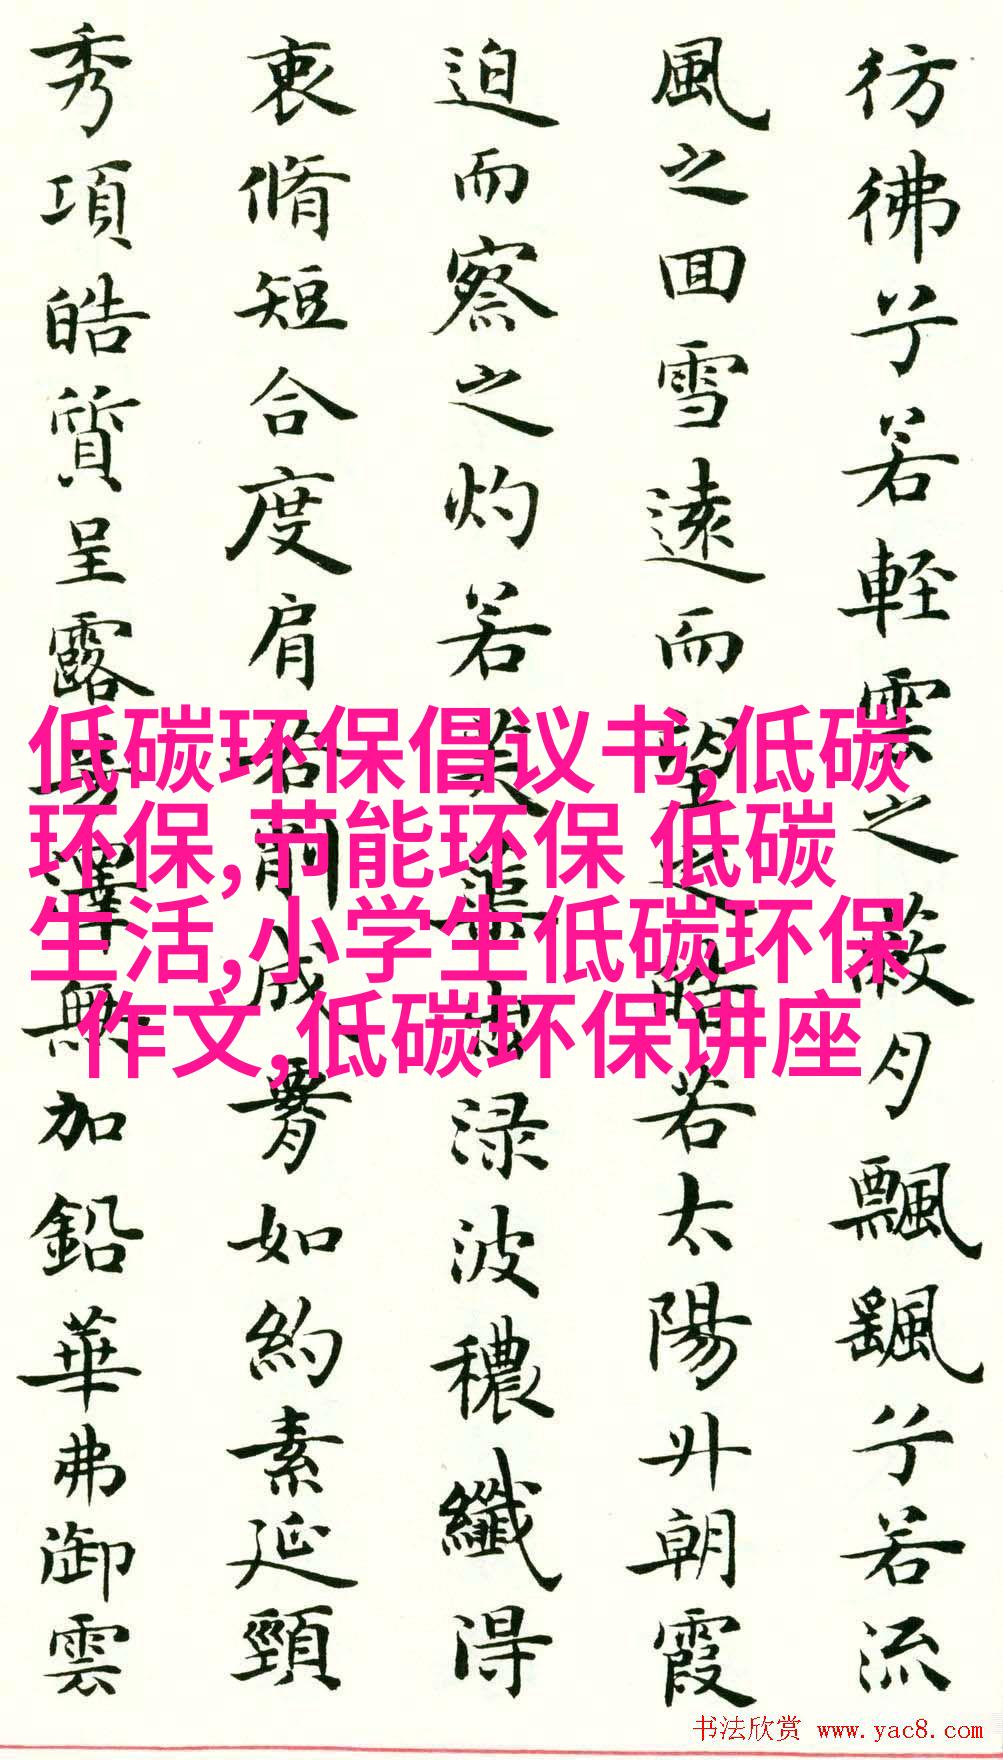 彷彿兮若軽雲之蔽月飄颻兮若流
風之回雪遠而望之皎若太陽升朝霞
迫而察之灼若芙蕖出渌波穠纖得
衷脩短合度肩若削成腰如約素延頸
秀項皓質呈露芳澤無加鉛華弗御雲
低碳环保倡议书,低碳
环保,节能环保 低碳
生活,小学生低碳环保
作文,低碳环保讲座
书法欣赏 www.yac8.com